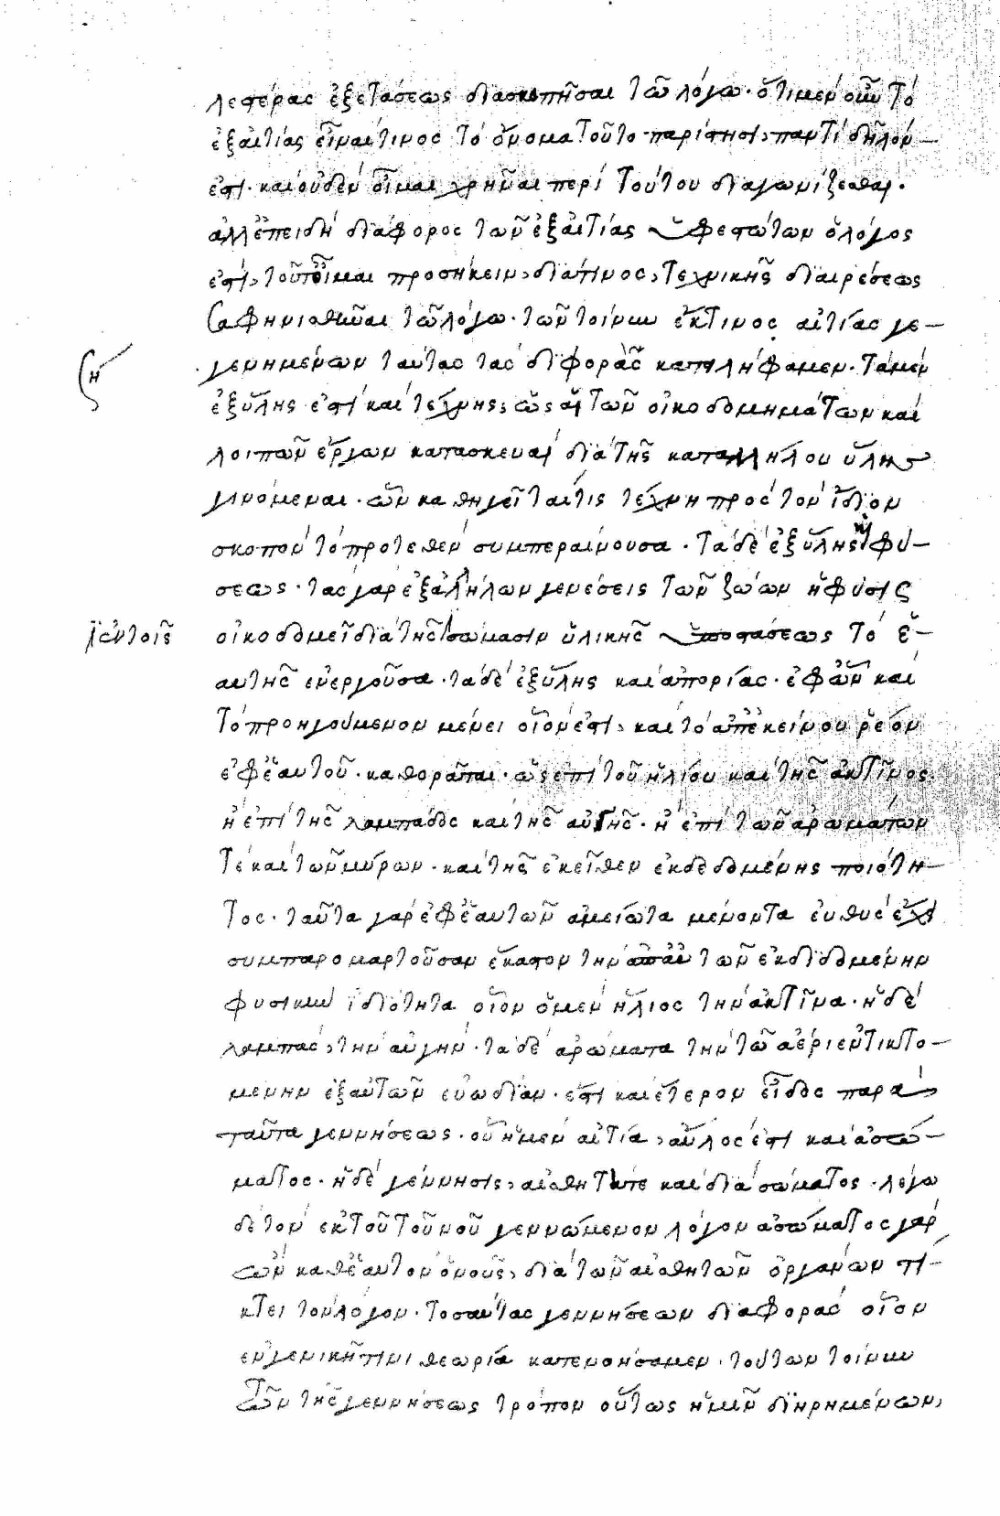 λεστέρας ἐξετάσεως διασκοπῆσαι τῶ λόγω· ὅτι μὲν οὖν τὸ
ἐξ αἰτίας εἶναι τινος τὸ ὄνομα τοῦτο παρίστησι, παντὶ δῆλόν
ἐστι· καὶ οὐδὲν οἶμαι χρῆναι περὶ τούτου διαγωνίζεσθαι·
ἀλλ ἐπειδὴ διάφορος τῶν ἐξ αἰτίας ὑφεστώτων ὁ λόγος
ἐστὶ, τοῦτο οἶμαι προσήκειν, διά τινος, τεχνικῆς διαιρέσεως
σαφηνισθῆναι τῶ λόγω· τῶν τοίνυν ἔκ τινος αἰτίας γε-
γενημένων ταύτας τὰς διφορὰς κατειλήφαμεν· τὰ μὲν
ἐξ ὕλης ἐστὶ καὶ τέχνης, ὡς αἱ τῶν οἰκοδομημάτων καὶ
λοιπῶν ἔργων κατασκευαὶ διὰ τῆς καταλλήλου ὕλης
γινόμεναι· ὧν καθηγεῖται τίς τέχνη πρὸς τὸν ἴδιον
σκοπὸν τὸ προτεθὲν συμπεραίνουσα· τὰ δὲ ἐξ ὕλης κ φύ-
σεως· τὰς γὰρ ἐξ ἀλλήλων γενέσεις τῶν ζώων ἡ φύσις
ἐν τοῖς οἰκοδομεῖ διὰ τῆς σώμασιν ὑλικῆς ὑποστάσεως τὸ ἑ-
αυτῆς ἐνεργοῦσα· τὰ δὲ ἐξ ὕλης καὶ ἀπορίας· ἐφ ὧν καὶ
τὸ προηγούμενον μένει οἷόν ἐστι, καὶ τὸ ἀπ ἐκείνου ῥέον
ἐφ ἑαυτοῦ· καθορᾶται· ὡς ἐπὶ τοῦ ἡλίου καὶ τῆς ἀκτῖνος
ἢ ἐπὶ τῆς λαμπάδος καὶ τῆς αὐγῆς· ἢ ἐπὶ τῶν ἀρωμάτων
τὲ καὶ τῶν μύρων· καὶ τῆς ἐκεῖθεν ἐκδεδομένης ποιότη-
τος· ταῦτα γὰρ ἐφ ἑαυτῶν ἀμείωτα μένοντα ευθυς ἔχει
συμπαρομαρτοῦσαν ἕκαστον τὴν τῶν ἐκδιδομένην
φυσικὴν ἰδιότητα οἷον ὁ μὲν ἥλιος τὴν ἀκτῖνα· ἡ δὲ
λαμπὰς, τὴν αὐγήν· τὰ δὲ ἀρώματα τὴν τῶ ἀέρι ἐντικτο-
μένην ἐξ αὐτῶν εὐωδίαν· ἔστι καὶ ἕτερον εἶδος παρὰ
ταῦτα γεννήσεως· οὗ ἡ μὲν αἰτία, ἄϋλος ἐστὶ καὶ ἀσώ-
ματος· ἡ δὲ γέννησις, αἰσθητή τε καὶ διὰ σώματος· λέγω
δὲ τὸν ἐκ τοῦ τοῦ νοῦ γεννώμενον λόγον ἀσώματος γὰρ
ὢν καθ ἑαυτὸν ὁ νοῦς, διὰ τῶν αἰσθητῶν ὀργάνων τί-
κτει τὸν λόγον· τοσαύτας γεννήσεων διαφορὰς οἷον
ἐν γενικῆ τινι θεωρία κατενοήσαμεν· τούτων τοίνυν
τῶν τῆς γεννήσεως τρόπον οὕτως ἡμῖν διηρημένων,